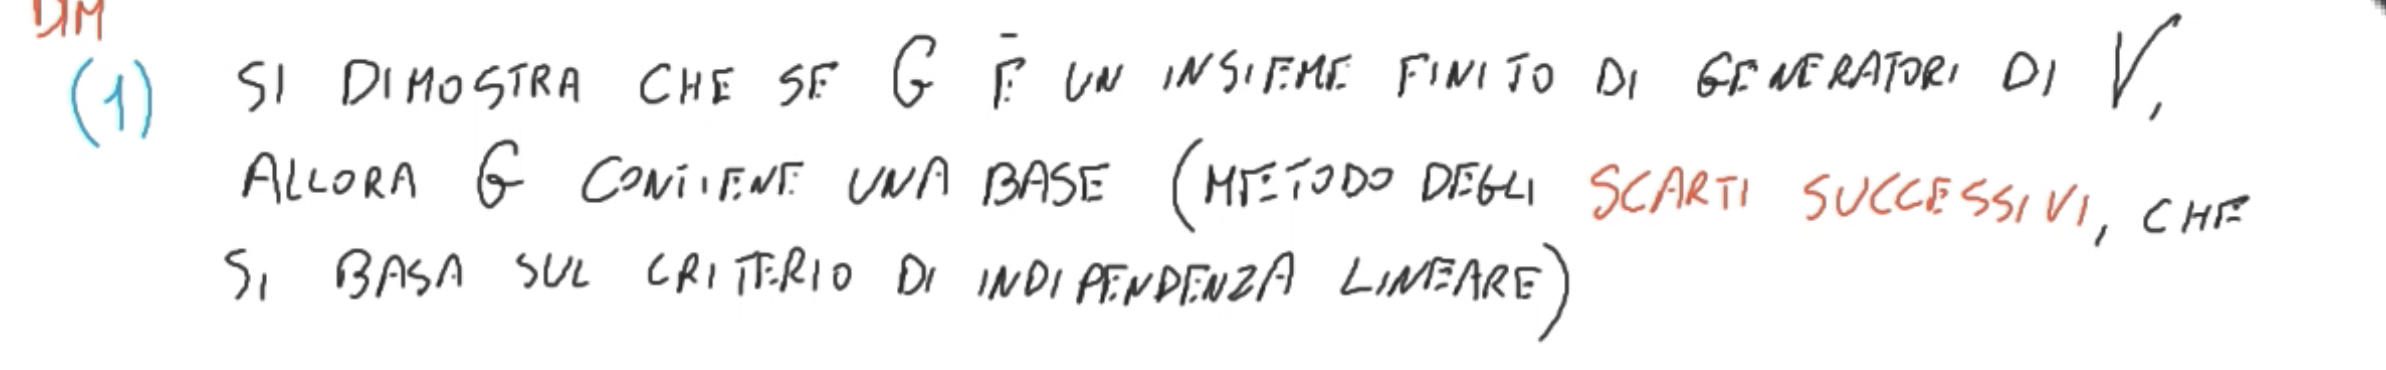 DIM
(1) SI DIMOSTRA CHE SE G È UN INSIEME FINITO DI GENERATORI DI V,
ALLORA G CONTIENE UNA BASE (METODO DEGLI SCARTI SUCCESSIVI, CHE
SI BASA SUL CRITERIO DI INDIPENDENZA LINEARE)